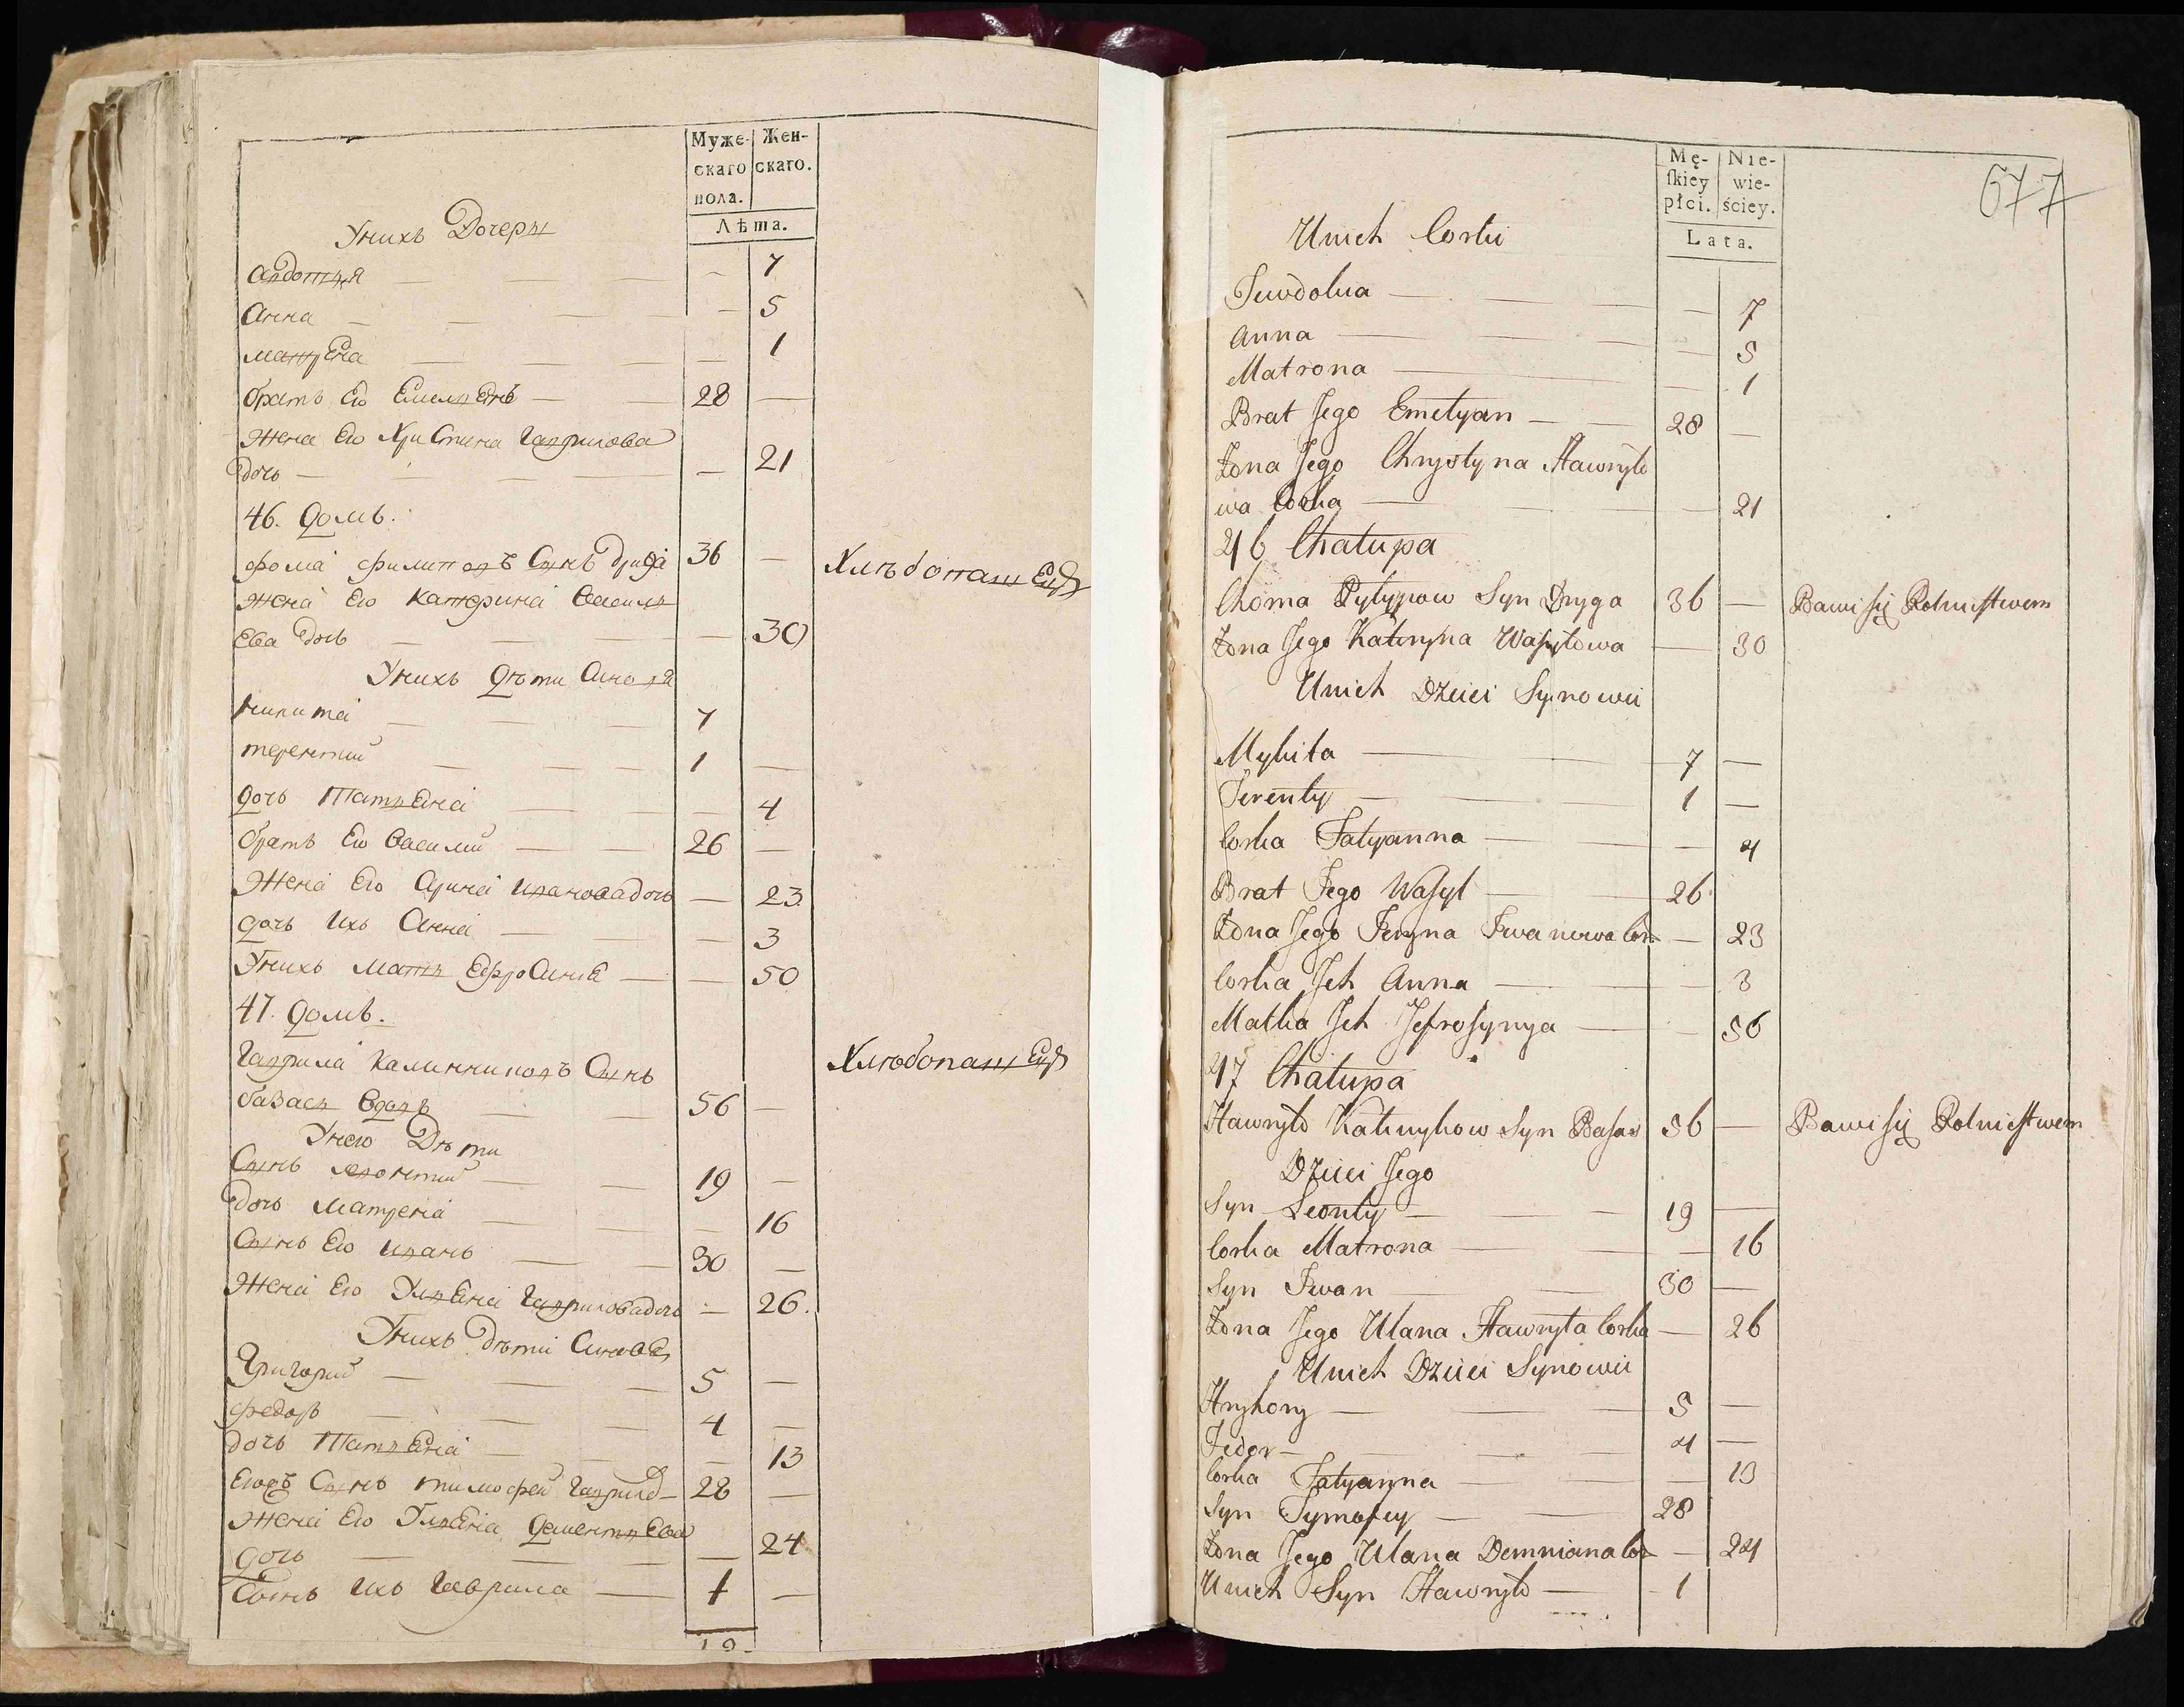 Муже-
скаго
пола.
Жен-
скаго.
Лѣта.
Унихъ Дочеры
Авдотия — — — — 7
Анна — — — — 5
матрена — — — — 1
братъ Его Емелиянъ — — 28 —
Жена Его Христина Гаврилова
дочь — — — — 21
46. домъ.
фома филиповъ Сынъ дрига 36 — Хлѣбопашецъ
Жена Его Катерина Василь
Ева дочь — — — 30
Унихъ дѣти Синовя
никита — — — 7
терентий — — — 1 —
дочь Татияна — — — 4
братъ Его Василий — — 26 —
Жена Его Арина Ивановадочь — 23
дочь Ихъ Анна — — 3
Унихъ мать Ефросиния — — 50
47. домъ.
Гаврила Калиниковъ Сынъ Хлѣбопашецъ
басась вдовъ — — 56 —
Унего Дѣти
Сынъ леонтий — — 19 —
дочь Матрена — — — 16
Сынъ Его иванъ — — 30 —
Жена Его Улияна Гавриловадочь — 26.
Унихъ дѣти Синове
Григорий — — — 5 —
федоръ — — — 4 —
дочь Татияна — — 13
Сынъ тимофей 28 —
Жена Его Улияна дементиева
дочь — — — — 24
Сынъ Ихъ Гаврила — 1 —
19
Mę-
ſkiey
płci.
Nie-
wie-
ściey.
Lata.
677
Unich Corki
Juwdokia — — — — 7
Anna — — — 5
Matrona — — — 1
Brat Jego Emelyan — — 28 —
Żona Jego Chrystyna Hawryło
wa Corka — — — 21
46 Chałupa
Choma Pylypow Syn Dryga 36 — Bawi się Rolnictwem
Żona Jego Kateryna Wasylowa — 30
Unich Dzieci Synowii
Mykita — — 7 —
Terenty — — — 1 —
Corka Tatyanna — — — 4
Brat Jego Wasyl — — 26
Żona Jego Jeryna Iwanowa Cor — 23
Corka Ich Anna — — — 3
Matka Ich Jefrosynya — — 56
47 Chałupa
Hawryło Kalinykow Syn Basas 56 — Bawi się Rolnictwem
Dzieci Jego
Syn Leonty — — — 19 —
Corka Matrona — — — 16
Syn Iwan — — 30 —
Żona Jego Ulana Hawryła Corka — 26
Unich Dzieci Synowii
Hryhory — — — 5 —
Fedor — — — 4 —
Corka Tatyanna — — — 13
Syn Tymofiey — — 28
Żona Jego Ulana Demniana Cor — 24
Unich Syn Hawryło — 1